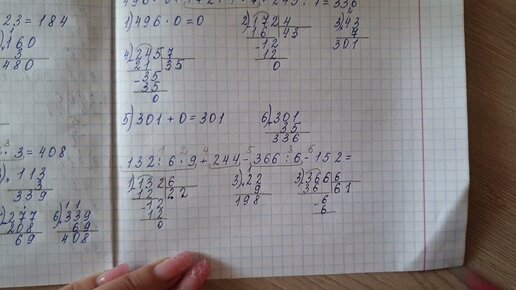 23 = 184
160
3
480
3 = 408
113
3
339
277
208
69
6) 339
69
408
1) 496 · 0 = 0
2) 172 4
16 43
12
12
0
3) 43
7
301
4) 245 7
21 35
35
35
0
5) 301 + 0 = 301
6) 301
35
336
132 : 6 · 9 + 244 - 366 : 6 - 152 =
1) 132 6
12 22
12
12
0
3) 22
9
198
3) 366 6
36 61
6
6